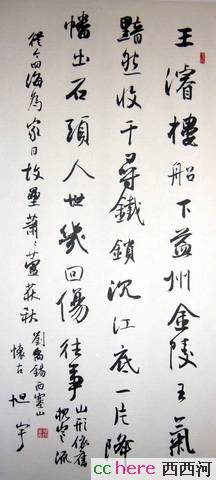 王濬樓船下益州金陵王氣
黯然收千尋鐵鎖沉江底一片降
幡出石頭人世幾回傷往事
山形依舊
枕寒流
從今四海為家日故壘蕭〻蘆荻秋
劉禹錫西塞山
懷古 旭宇
cchere 西西河